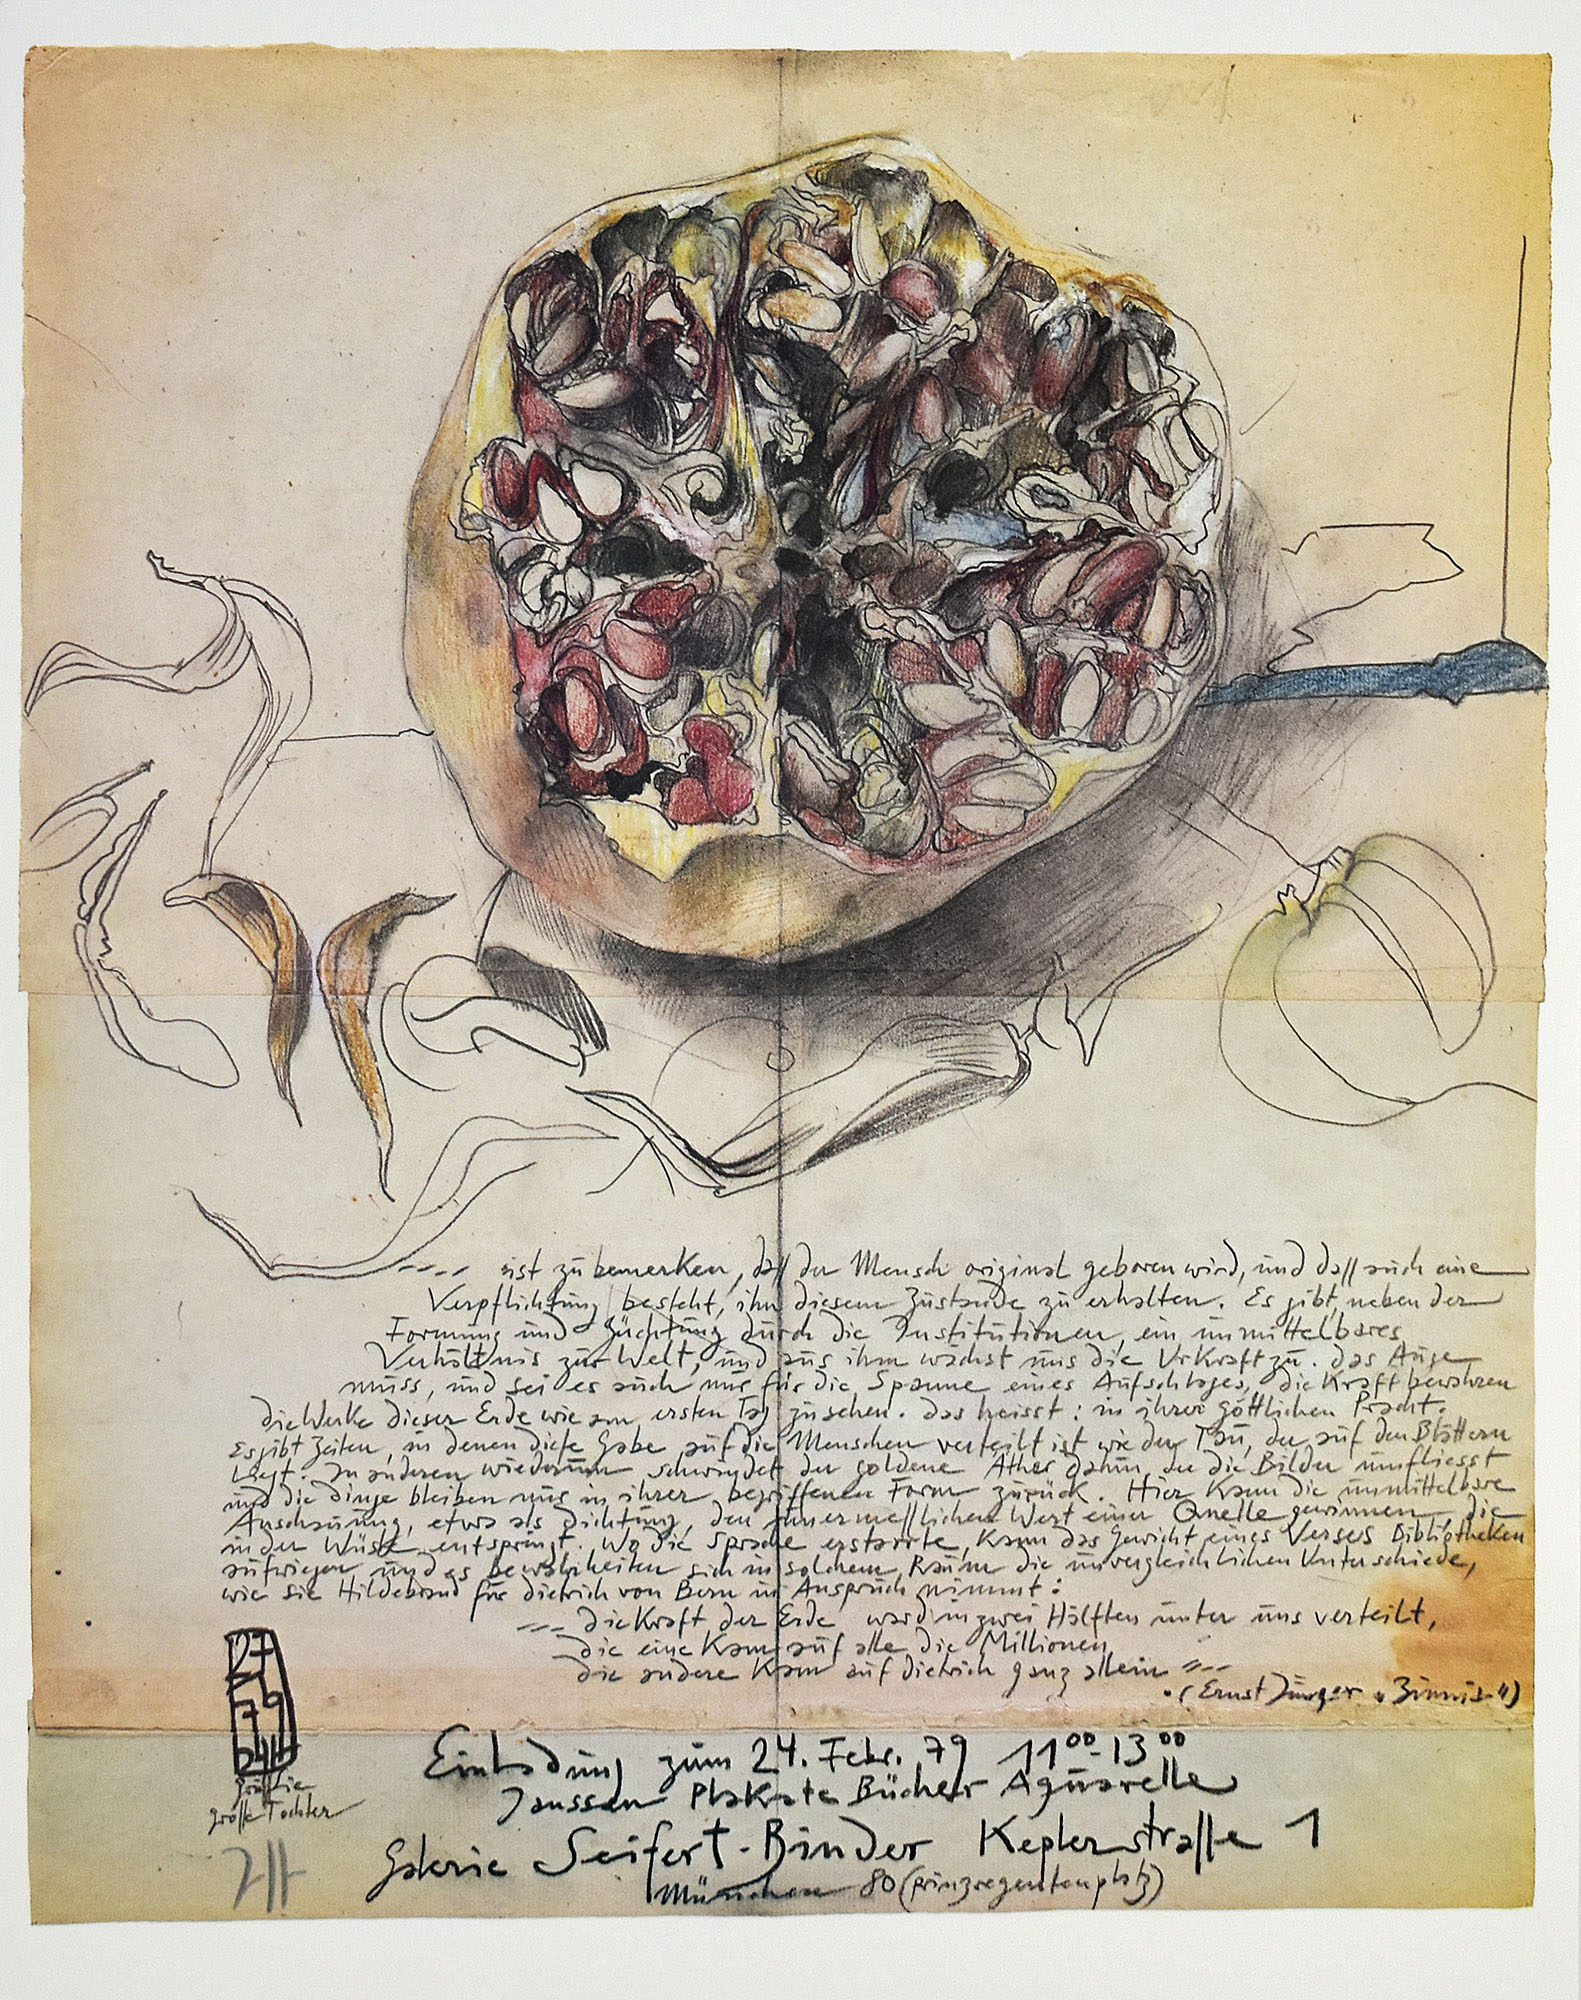 ---- ist zu bemerken, daſſ der Mensch original geboren wird, und daſſ auch eine
Verpflichtung besteht, ihn diesem Zustande zu erhalten. Es gibt, neben der
Formung und Züchtung durch die Institutionen, ein unmittelbares
Verhältnis zur Welt, und aus ihm wächst uns die Urkraft zu. das Auge
muss, und sei es auch nur für die Spanne eines Aufschlages, die Kraft bewahren
die Werke dieser Erde wie am ersten Tag zu sehen. das heisst: in ihrer göttlichen Pracht.
Es gibt Zeiten, in denen diese Gabe auf die Menschen verteilt ist wie der Tau, der auf den Blättern
liegt. In anderen wiederum schwindet der goldene Äther dahin, der die Bilder umfliesst
und die dinge bleiben nur in ihrer begriffenen Form zurück. Hier kann die unmittelbare
Anschauung, etwa als Dichtung, den unermeßlichen Wert einer Quelle gewinnen, die
in der Wüste entspringt. Wo die Sprache erstarrte, kann das Gewicht eines Verses Bibliotheken
aufwiegen und es bewahrheiten sich in solchem Raum die unvergleichlichen Unterschiede,
wie sie Hildebrand für Dietrich von Bern in Anspruch nimmt:
--- die Kraft der Erde ward in zwei Hälften unter uns verteilt,
die eine Kam auf alle die Millionen
die andere Kam auf Dietrich ganz allein "--
(Ernst Jünger „Zinnia")
27
2
79
große Tochter
Einladung zum 24. Febr. 79 11⁰⁰-13⁰⁰
Janssen Plakate Bücher Aquarelle
Galerie Seifert-Binder Keplerstraſſe 1
München 80 (prinzregentenplatz)